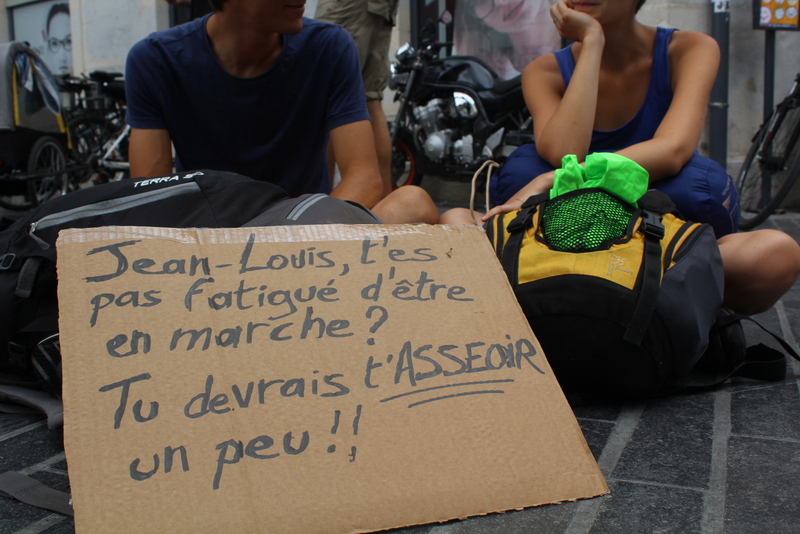 TERRA
Jean-Louis, t'es
pas fatigué d'être
en marche?
Tu devrais t'ASSEOIR
un peu!!